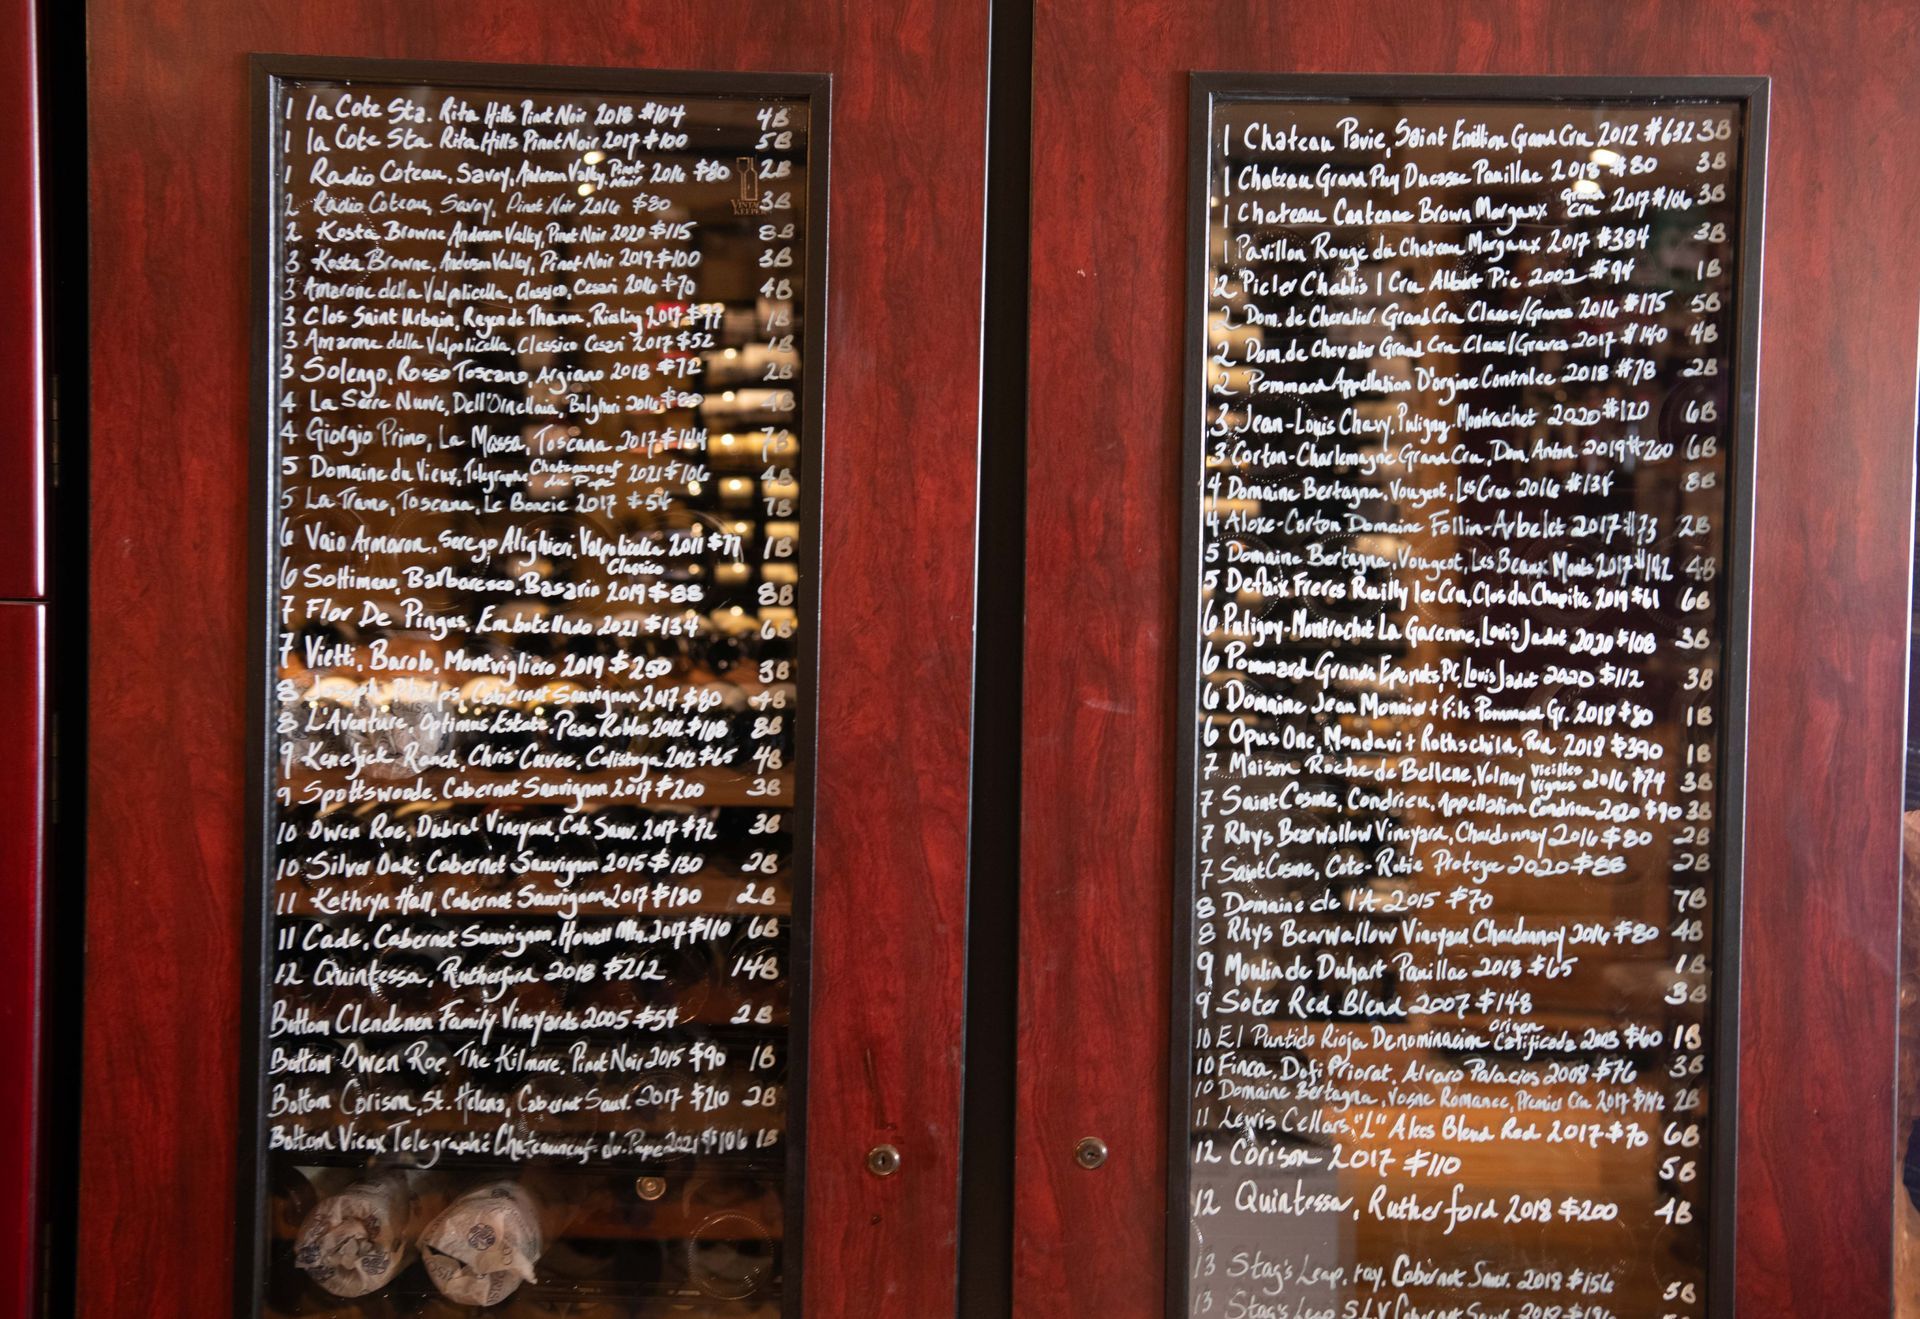 1 la Cote Sta. Rita Hills Pinot Noir 2018 $104 4B
1 la Cote Sta Rita Hills Pinot Noir 2017 $100 5B
1 Radio Coteau, Savoy, Anderson Valley, Pinot Noir 2016 $80 2B
2 Radio Coteau, Savoy, Pinot Noir 2016 $80 3B
VINTAGE KEEPER
2 Kosta Browne Anderson Valley, Pinot Noir 2020 $115 8B
3 Kosta Browne, Anderson Valley, Pinot Noir 2019 $100 3B
3 Amarone della Valpolicella, Classico, Cesari 2016 $70 4B
3 Clos Saint Urbain, Rangen de Thann, Riesling 2017 $97 1B
3 Amarone della Valpolicella, Classico Cesari 2017 $52 1B
3 Solengo, Rosso Toscano, Argiano 2018 $72 2B
4 La Serre Nuove, Dell'Ornellaia, Bolgheri 2016 4B
4 Giorgio Primo, La Massa, Toscana 2017 $144 7B
5 Domaine du Vieux, Telegraphe Chateauneuf du Pape 2021 $106 4B
5 La Trame, Toscana, Le Boncie 2017 $54 7B
6 Vaio Armaron, Serego Alighieri, Valpolicella Classico 2011 $77 1B
6 Sottimano, Barbaresco, Basarin 2019 $88 8B
7 Flor De Pingus, Embotellado 2021 $134 6B
7 Vietti, Barolo, Monvigliero 2019 $250 3B
8 Joseph Phelps, Cabernet Sauvignon 2017 $80 4B
8 L'Aventure, Optimus Estate, Paso Robles 2012 $108 8B
9 Kenefick Ranch, Chris' Cuvee, Calistoga 2012 $65 4B
9 Spottswoode, Cabernet Sauvignon 2017 $200 3B
10 Owen Roe, Dubrul Vineyard, Cab. Sauv. 2017 $72 3B
10 Silver Oak, Cabernet Sauvignon 2015 $130 2B
11 Kathryn Hall, Cabernet Sauvignon 2017 $180 2B
11 Cade, Cabernet Sauvignon, Howell Mtn. 2017 $110 6B
12 Quintessa, Rutherford 2018 $212 14B
Bottom Clendenen Family Vineyards 2005 $54 2B
Bottom Owen Roe, The Kilmore, Pinot Noir 2015 $90 1B
Bottom Corison, St. Helena, Cabernet Sauv. 2017 $210 2B
Bottom Vieux Telegraphe Chateauneuf-du-Pape 2021 $106 1B
1 Chateau Pavie, Saint Emilion Grand Cru 2012 $632 3B
1 Chateau Grand Puy Ducasse Pauillac 2018 $80 3B
1 Chateau Cantenac Brown Margaux Grand Cru 2017 $106 3B
1 Pavillon Rouge du Chateau Margaux 2017 $384 3B
2 Picler Chablis 1 Cru Albert Pic 2002 $94 1B
2 Dom. de Chevalier. Grand Cru Classe/Graves 2016 $175 5B
2 Dom. de Chevalier Grand Cru Classe/Graves 2017 $140 4B
2 Pommard Appellation D'orgine Controlee 2018 $78 2B
3 Jean-Louis Chavy, Puligny-Montrachet 2020 $120 6B
3 Corton-Charlemagne Grand Cru, Dom. Anton. 2019 $200 6B
4 Domaine Bertagna, Vougeot, Les Cras 2016 $134 8B
4 Aloxe-Corton Domaine Follin-Arbelet 2017 $73 2B
5 Domaine Bertagna, Vougeot, Les Beaux Monts 2017 $142 4B
5 Defaix Freres Ruilly 1er Cru, Clos du Chapitre 2019 $61 6B
6 Puligny-Montrachet La Garenne, Louis Jadot 2020 $108 3B
6 Pommard Grands Epenots, Louis Jadot 2020 $112 3B
6 Domaine Jean Monnier + Fils Pommard Gr. 2018 $80 1B
6 Opus One, Mondavi + Rothschild, Red 2018 $390 1B
7 Maison Roche de Bellene, Volnay Vieilles Vignes 2016 $74 3B
7 Saint Cosme, Condrieu, Appellation Condrieu 2020 $90 3B
7 Rhys Bearwallow Vineyard, Chardonnay 2016 $80 2B
7 Saint Cosme, Cote-Rotie Protege 2020 $88 2B
8 Domaine de l'A 2015 $70 7B
8 Rhys Bearwallow Vineyard Chardonnay 2016 $80 4B
9 Moulin de Duhart Pauillac 2018 $65 1B
9 Soter Red Blend 2007 $148 3B
10 El Puntido Rioja Denominacion Origen Calificada 2003 $60 1B
10 Finca, Dofi Priorat, Alvaro Palacios 2008 $76 3B
10 Domaine Bertagna, Vosne Romanee, Premier Cru 2017 $142 2B
11 Lewis Cellars, "L" Alecs Blend Red 2017 $70 6B
12 Corison 2017 $110 5B
12 Quintessa, Rutherford 2018 $200 4B
13 Stag's Leap, Fay, Cabernet Sauv. 2018 $156 5B
13 Stag's Leap SLV Cabernet Sauv 2018